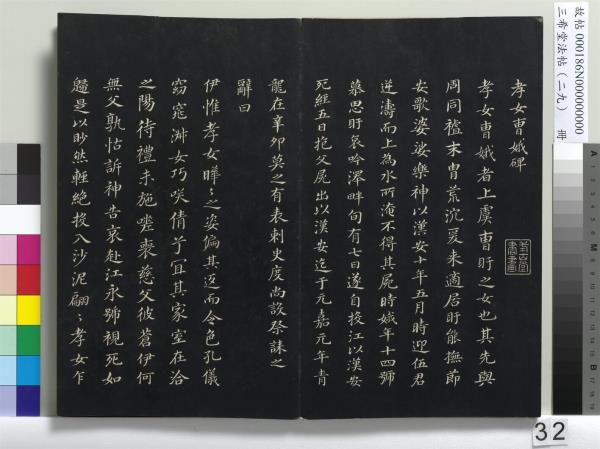 孝女曹娥碑
孝女曹娥者上虞曹盱之女也其先與
周同禋末胄荒沉爰来適居盱能撫節
安歌婆娑樂神以漢安十年五月時迎伍君
逆濤而上為水所淹不得其屍時娥年十四號
慕思盱哀吟澤畔旬有七日遂自投江以漢安
死經五日抱父屍出以漢安迄于元嘉元年青
龍在辛卯莫之有表刺史度尚設祭誄之
辭曰
伊惟孝女曄〻之姿偏其返而令色孔儀
窈窕淑女巧咲倩兮宜其家室在洽
之陽待禮未施嗟喪慈父彼蒼伊何
無父孰怙訴神告哀赴江永號視死如
歸是以眇然輕絶投入沙泥翩〻孝女乍
故帖 000186N000000000
三希堂法帖（二九） 冊
32
A
M
B